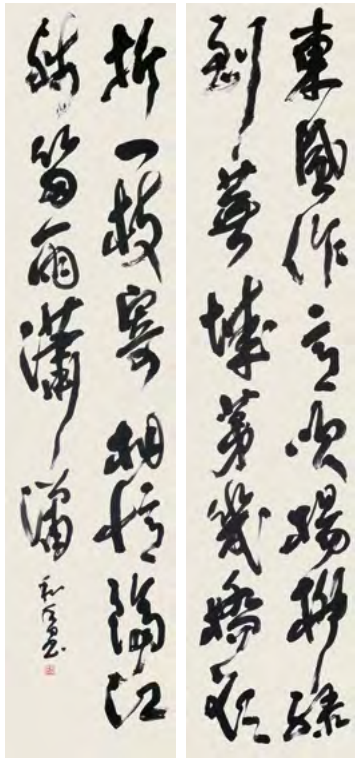 東風作意吹楊柳綠
到蕪城第幾橋欲
折一枝寄相憶隔江
殘笛雨瀟瀟